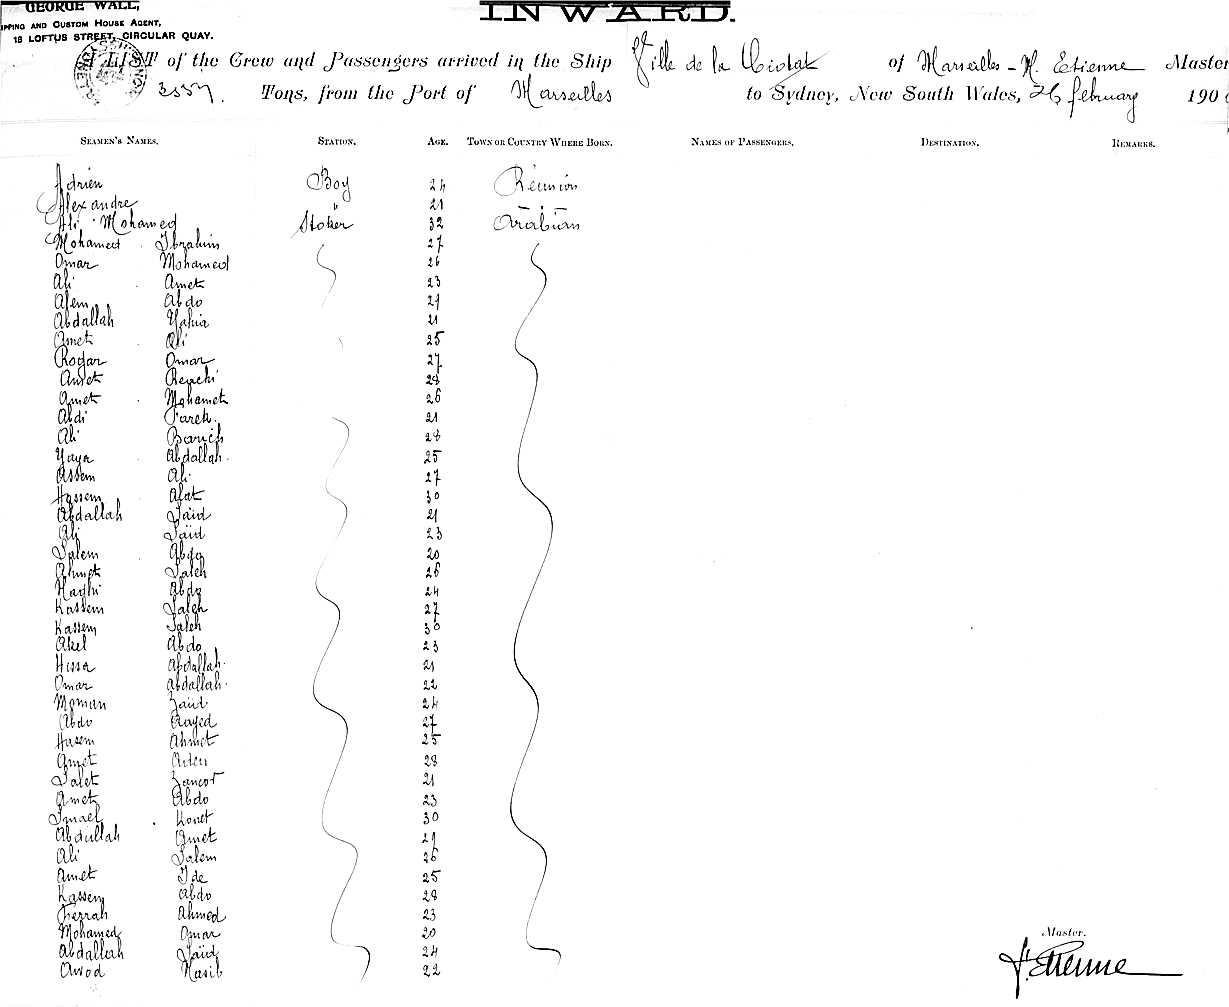 GEORGE WALL,
SHIPPING AND CUSTOM HOUSE AGENT,
18 LOFTUS STREET, CIRCULAR QUAY.
INWARD.
LIST of the Crew and Passengers arrived in the Ship Ville de la Ciotat of Marseilles - M. Etienne Master
3557. Tons, from the Port of Marseilles to Sydney, New South Wales, 26 february 190
SEAMEN'S NAMES. STATION. AGE. TOWN OR COUNTRY WHERE BORN. NAMES OF PASSENGERS. DESTINATION. REMARKS.
Adrien Boy 24 Réunion
Alexandre " 21
Ali Mohamed Stoker 32 Arabian
Mohamed Ibrahim 27
Omar Mohamed 26
Ali Amet 23
Alem Abdo 29
Abdallah Yahia 21
Amet Ali 25
Rogar Omar 27
Amet 28
Amet Mohamet 26
Abdi Farek. 21
Ali 28
Yaya Abdallah. 25
Assem Ali 27
Hassem Afat 30
Abdallah Saïd 21
Ali Saïd 23
Salem Abdo 20
Ahmet Saleh 26
Abdo 24
Kassem Saleh 27
Kassem Saleh 30
Akel Abdo 23
Hissa Abdallah. 21
Omar Abdallah. 22
Moman Zaïd 24
Abdo 27
Hasem Ahmet 25
Amet 28
Salet 21
Amet Abdo 23
Ismael 30
Abdullah Amet 29
Ali Salem 26
Amet Ide 25
Kassem Abdo 28
Ferrah Ahmed 23
Mohamed Omar 20
Abdallah Saïd 24
Awod Nasib 22
Master.
Etienne